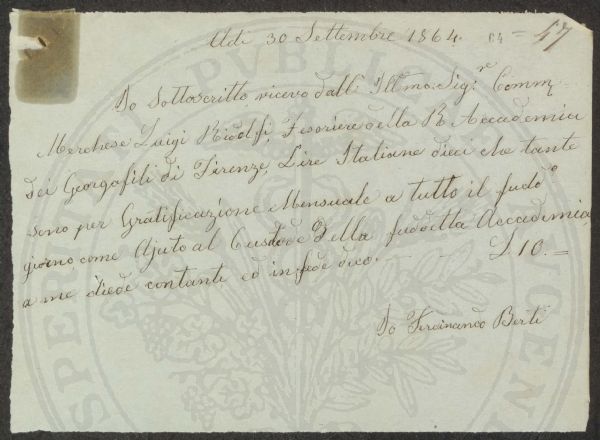 Adi 30 Settembre 1864. 64 = 47
Io Sottoscritto ricevo dall' Illmo. Sig.re Comm.
Marchese Luigi Ridolfi, Tesoriere della R. Accademia
dei Georgofili di Firenze, Lire Italiane dieci che tante
sono per Gratificazione Mensuale a tutto il sudo
giorno, come Ajuto al Custode Della suddetta Accademia,
a me diede contante ed in fede dico. - - £ 10. =
Io Ferdinando Berti
PUBBLIC
PROSPERITA